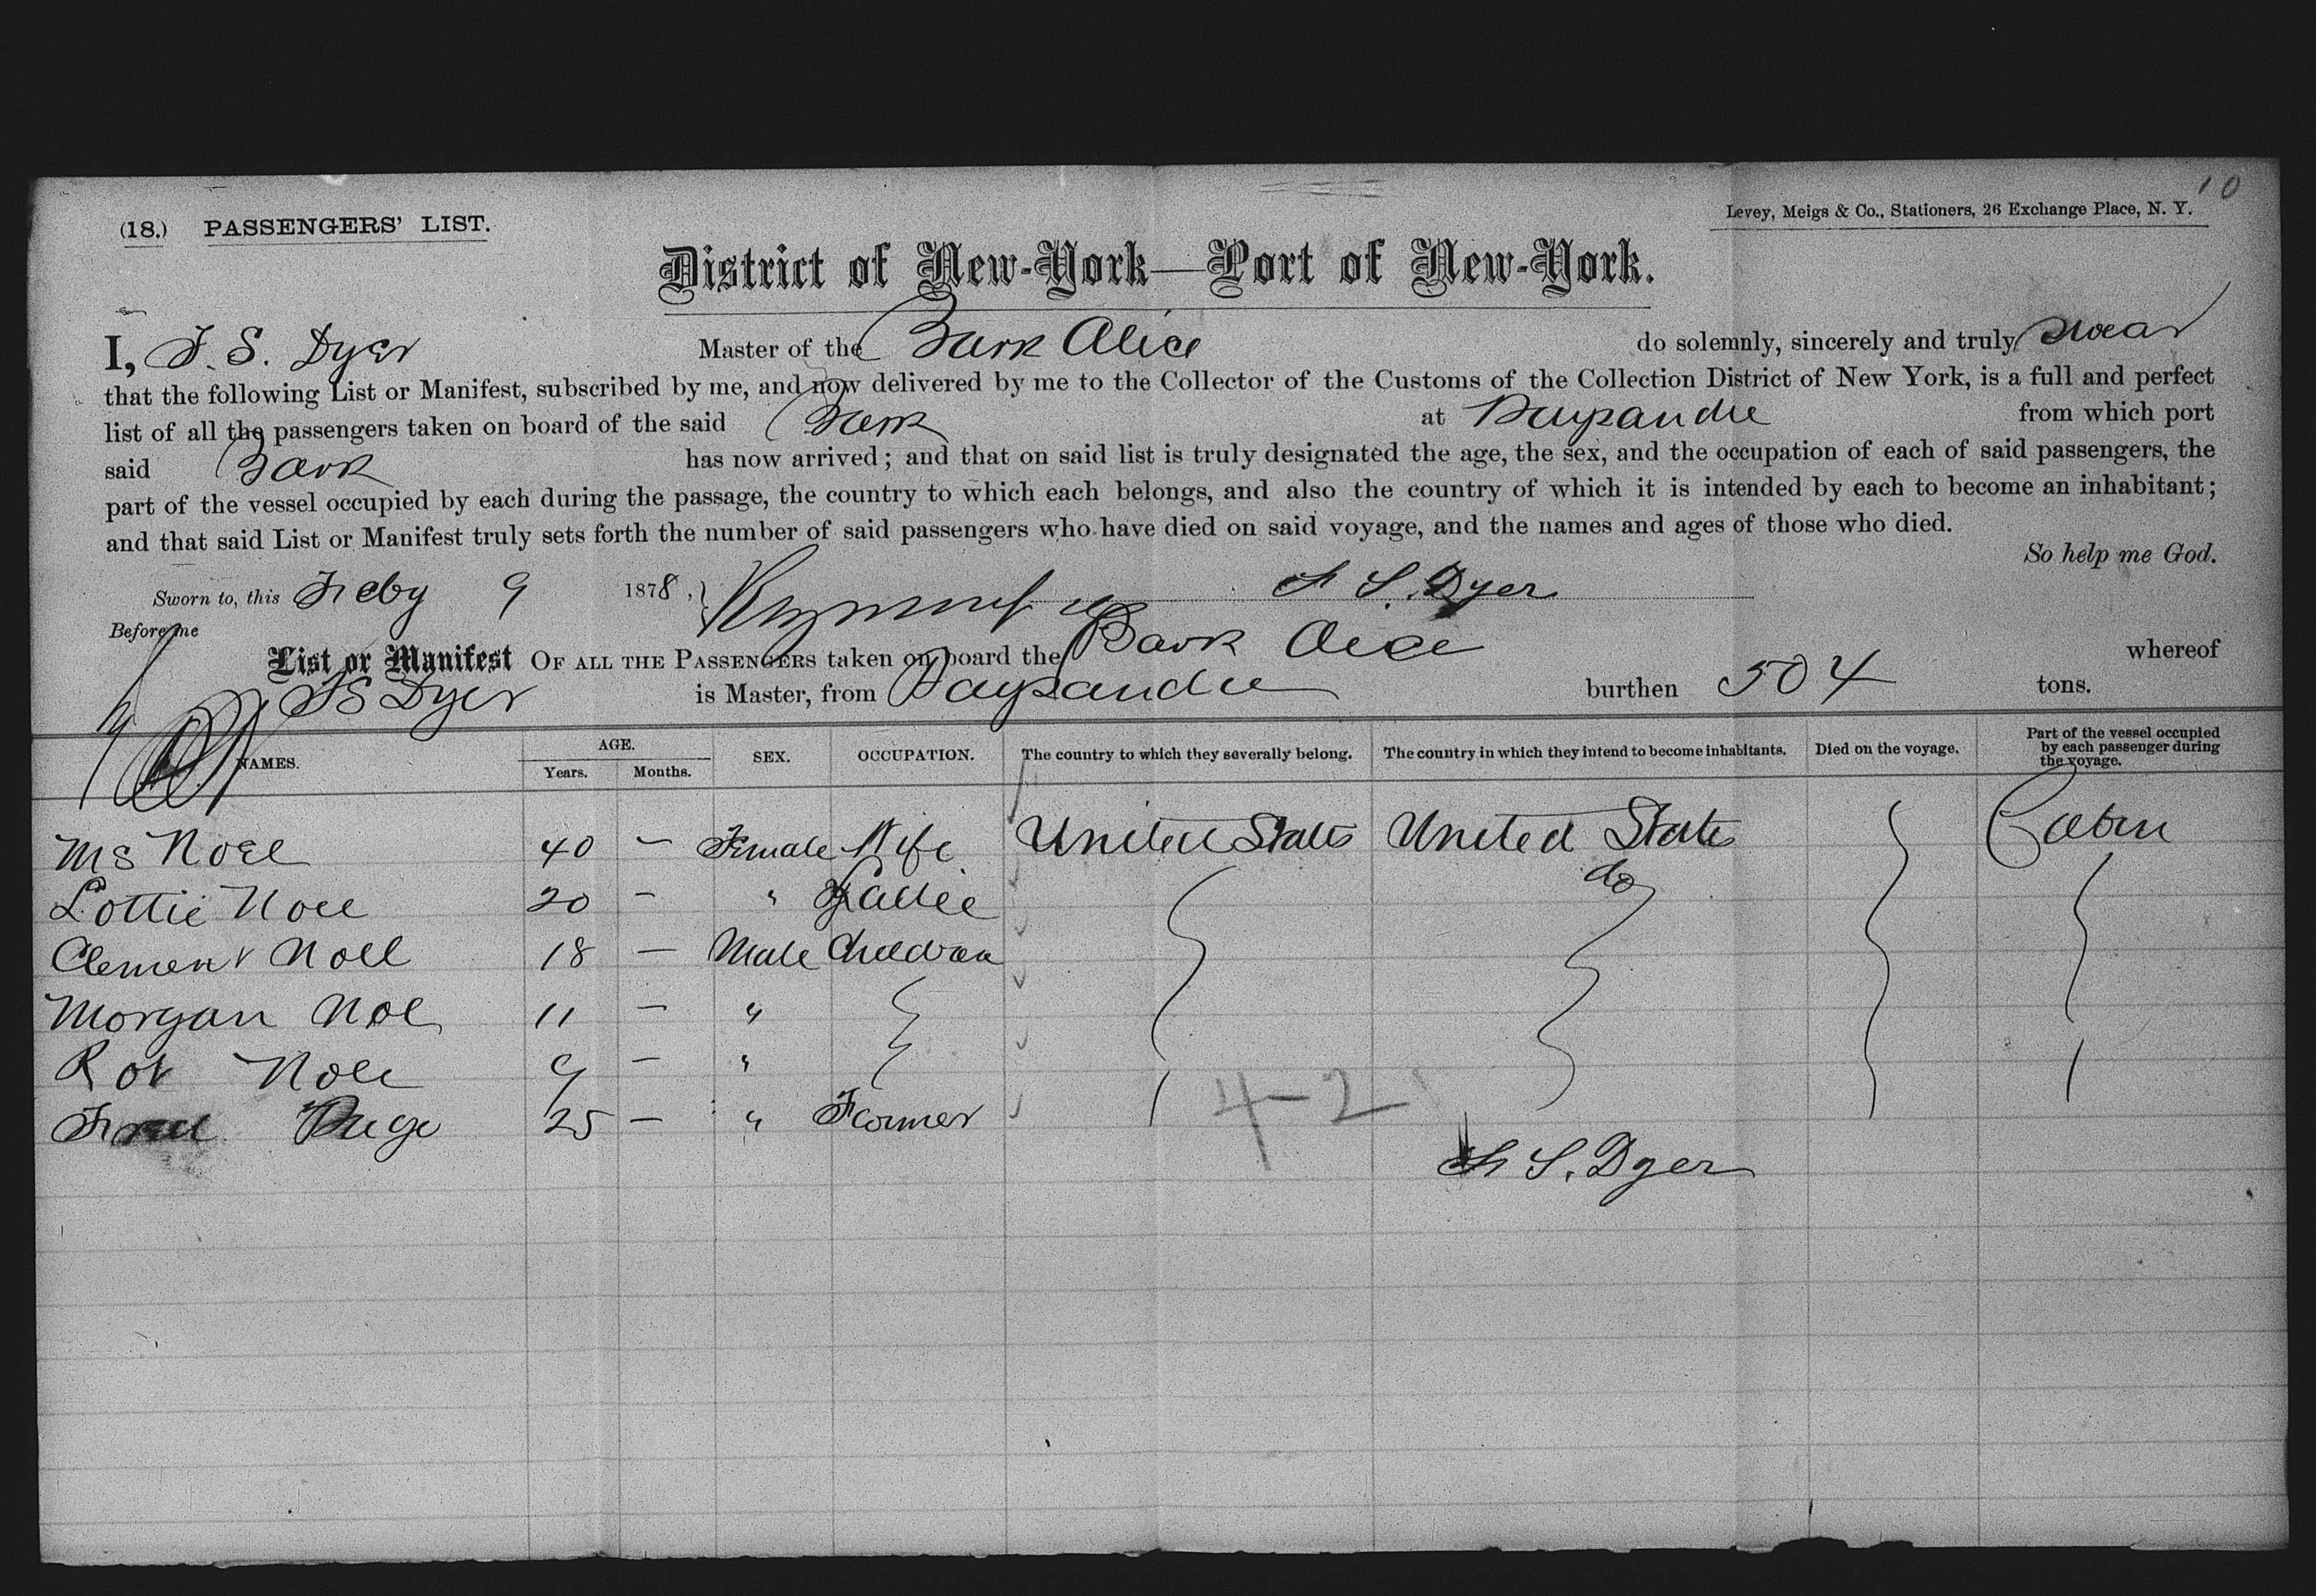 10
(18.) PASSENGERS' LIST.
Levey, Meigs & Co., Stationers, 26 Exchange Place, N. Y.
District of New-York—Port of New-York.
I, F. S. Dyer Master of the Bark Alice do solemnly, sincerely and truly swear
that the following List or Manifest, subscribed by me, and now delivered by me to the Collector of the Customs of the Collection District of New York, is a full and perfect
list of all the passengers taken on board of the said Bark at Paysandu from which port
said Bark has now arrived; and that on said list is truly designated the age, the sex, and the occupation of each of said passengers, the
part of the vessel occupied by each during the passage, the country to which each belongs, and also the country of which it is intended by each to become an inhabitant;
and that said List or Manifest truly sets forth the number of said passengers who have died on said voyage, and the names and ages of those who died.
So help me God.
Sworn to, this Feby 9 1878, F S. Dyer
Before me
List or Manifest OF ALL THE PASSENGERS taken on board the Bark Alice whereof
F S Dyer is Master, from Paysandu burthen 504 tons.
NAMES. AGE. Years. Months. SEX. OCCUPATION. The country to which they severally belong. The country in which they intend to become inhabitants. Died on the voyage. Part of the vessel occupied by each passenger during the voyage.
Ms Noel 40 — Female Wife United States United States Cabin
Lottie Noel 20 — " do
Clement Noell 18 — Male Children
Morgan Noel 11 — "
Noel 9 — "
Fred Page 25 — " Farmer
4-2
F S. Dyer